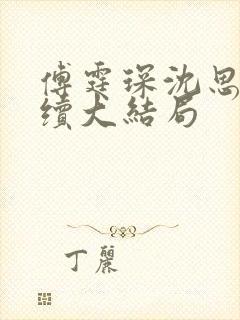 傅霆琛沈思
續大結局
丁麗